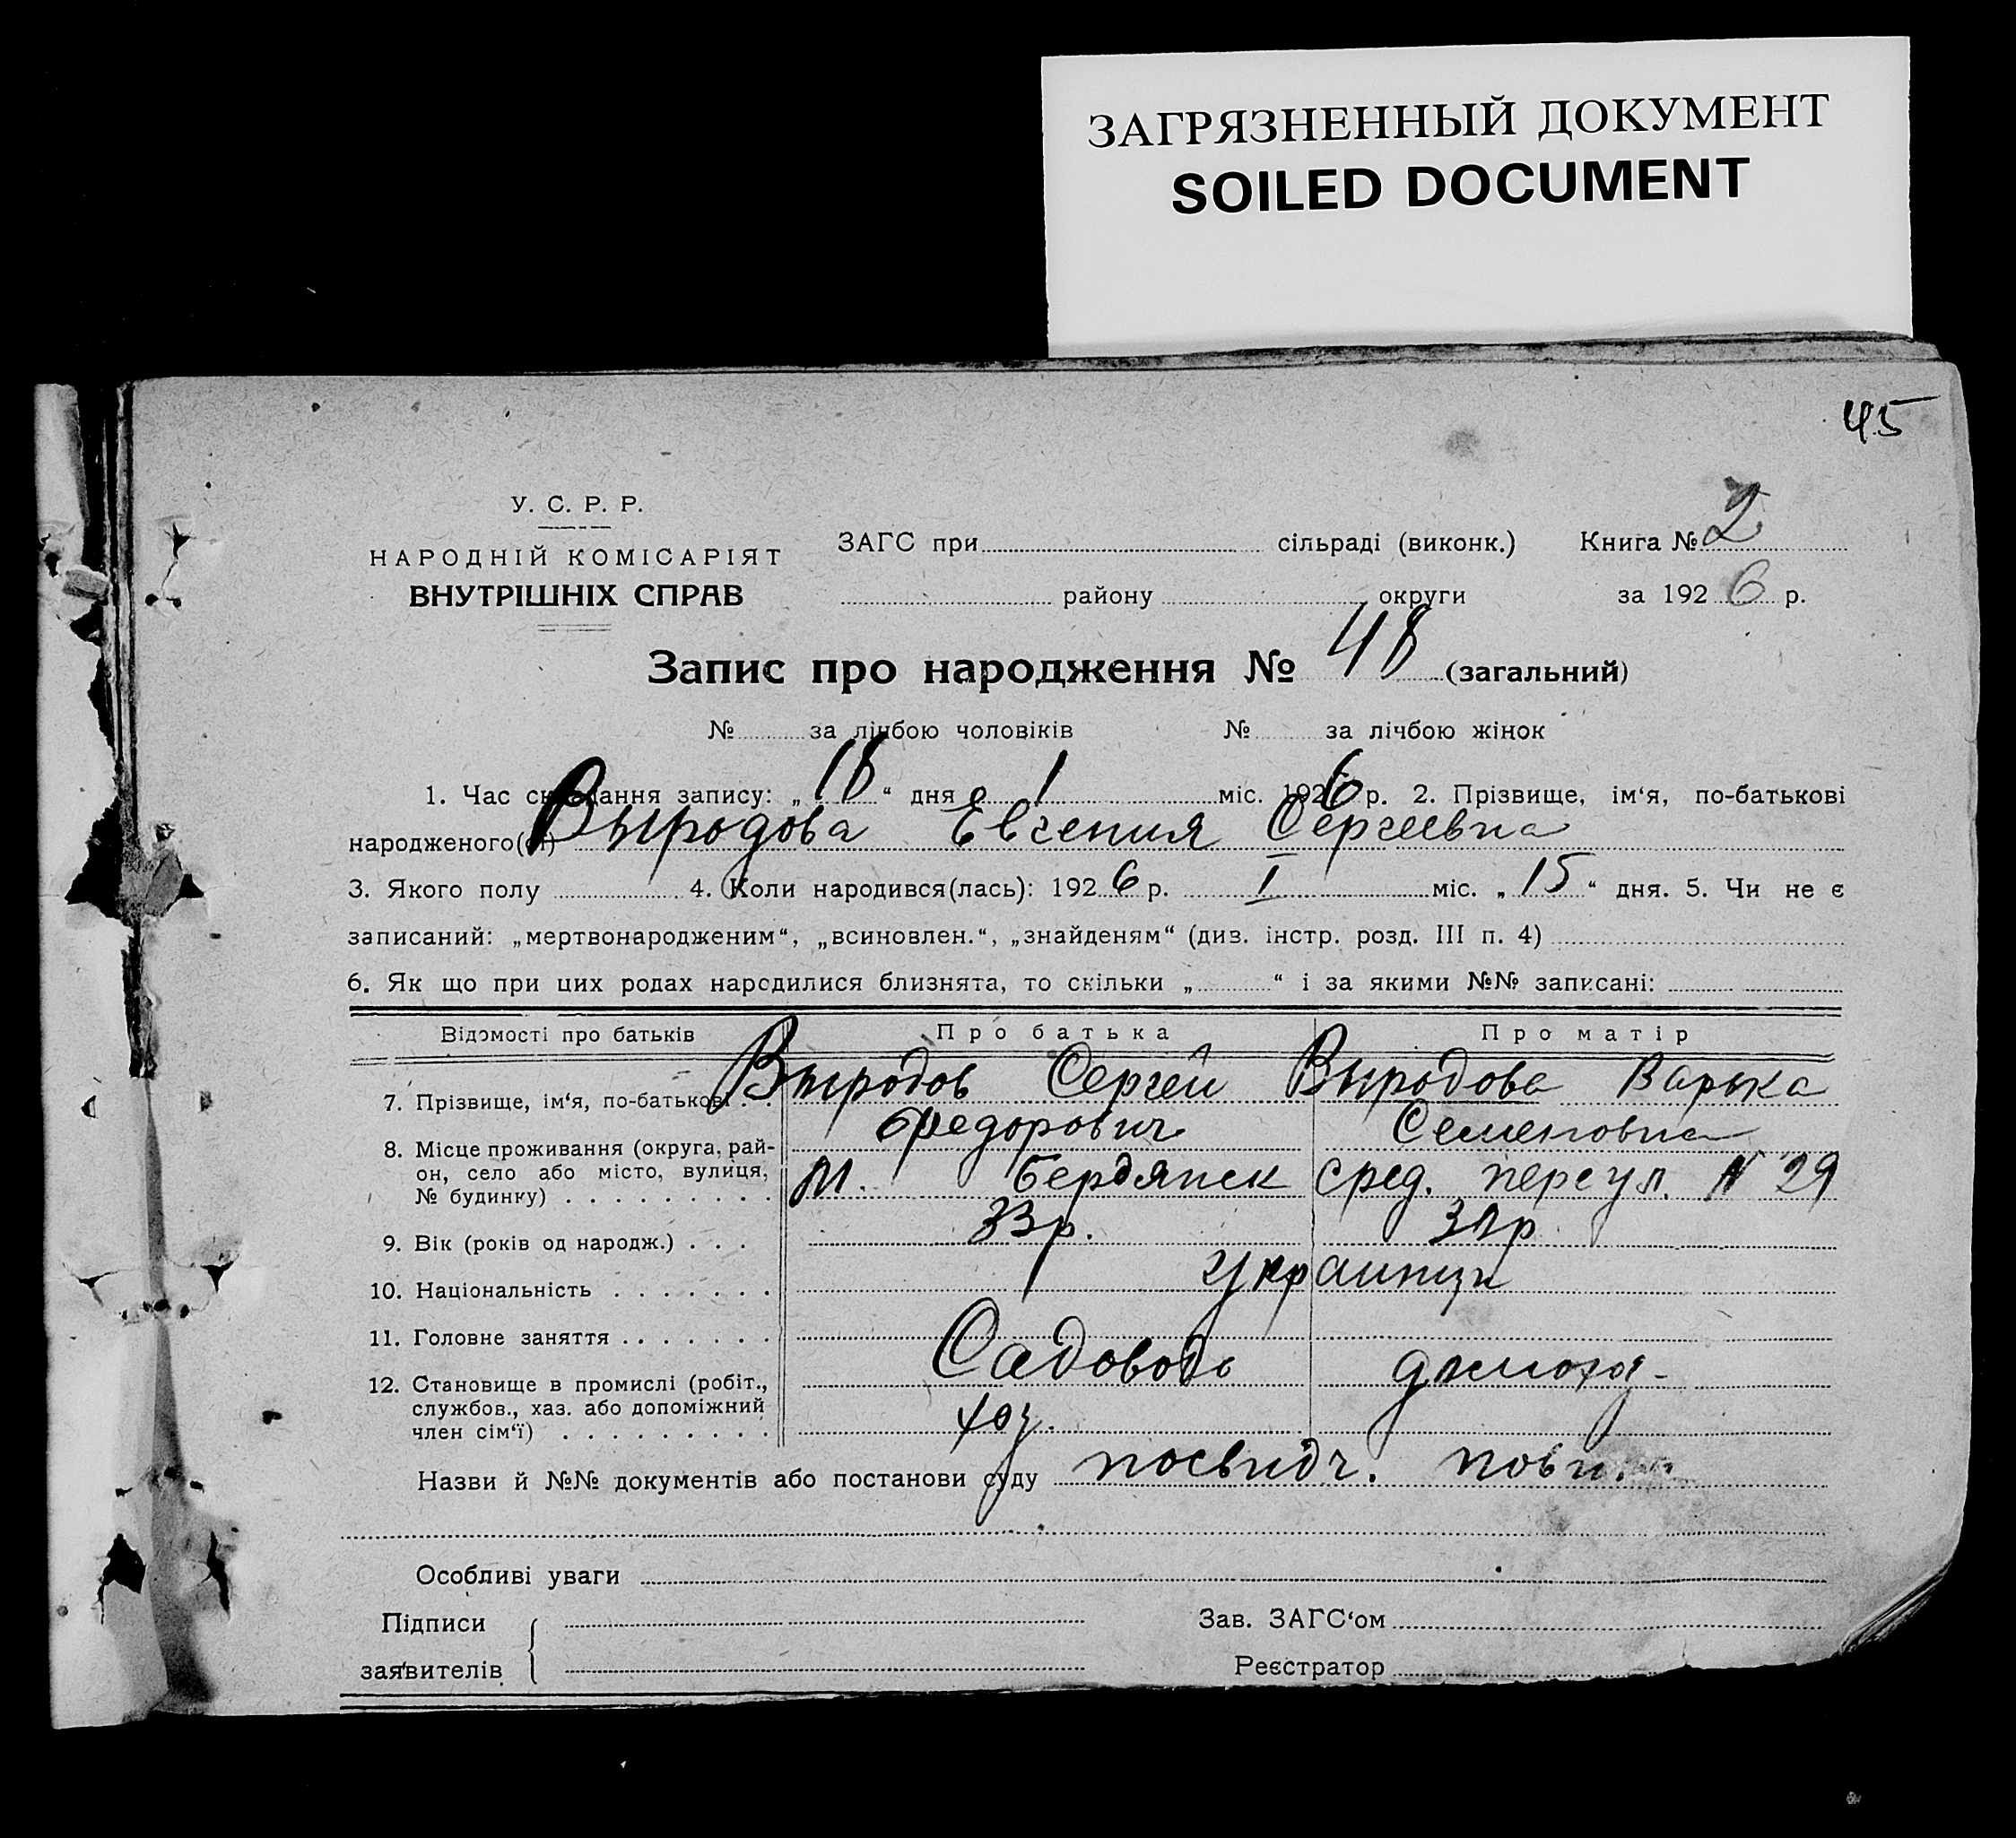 ЗАГРЯЗНЕННЫЙ ДОКУМЕНТ
SOILED DOCUMENT
45
У. С. Р. Р.
НАРОДНІЙ КОМІСАРІЯТ
ВНУТРІШНІХ СПРАВ
ЗАГС при сільраді (виконк.) Книга № 2
району округи за 1926 р.
Запис про народження № 48 (загальний)
№ за лічбою чоловіків № за лічбою жінок
1. Час складання запису: „18“ дня 1 міс. 1926 р. 2. Прізвище, ім‘я, по-батькові
народженого(ої) Выродова Евгения Сергеевна
3. Якого полу 4. Коли народився(лась): 1926 р. I міс. „15“ дня. 5. Чи не є
записаний: „мертвонародженим“, „всиновлен.“, „знайденям“ (див. інстр. розд. III п. 4)
6. Як що при цих родах народилися близнята, то скільки „ “ і за якими №№ записані:
Відомості про батьків Про батька Про матір
7. Прізвище, ім‘я, по-батькові . . Выродов Сергей Выродова Варька
Федорович Семеновна
8. Місце проживання (округа, рай-
он, село або місто, вулиця,
№ будинку) . . . . . . . . . м. Бердянск сред. переул. N 29
9. Вік (років од народж.) . . . 33 р.
10. Національність . . . . . . . украинцы
11. Головне заняття . . . . . . .
Садоводс
12. Становище в промислі (робіт.,
службов., хаз. або допоміжний
член сім‘ї) . . . . . . . . . хоз.
Назви й №№ документів або постанови суду посвидч.
Особливі уваги
Підписи
заявителів
Зав. ЗАГС‘ом
Реєстратор